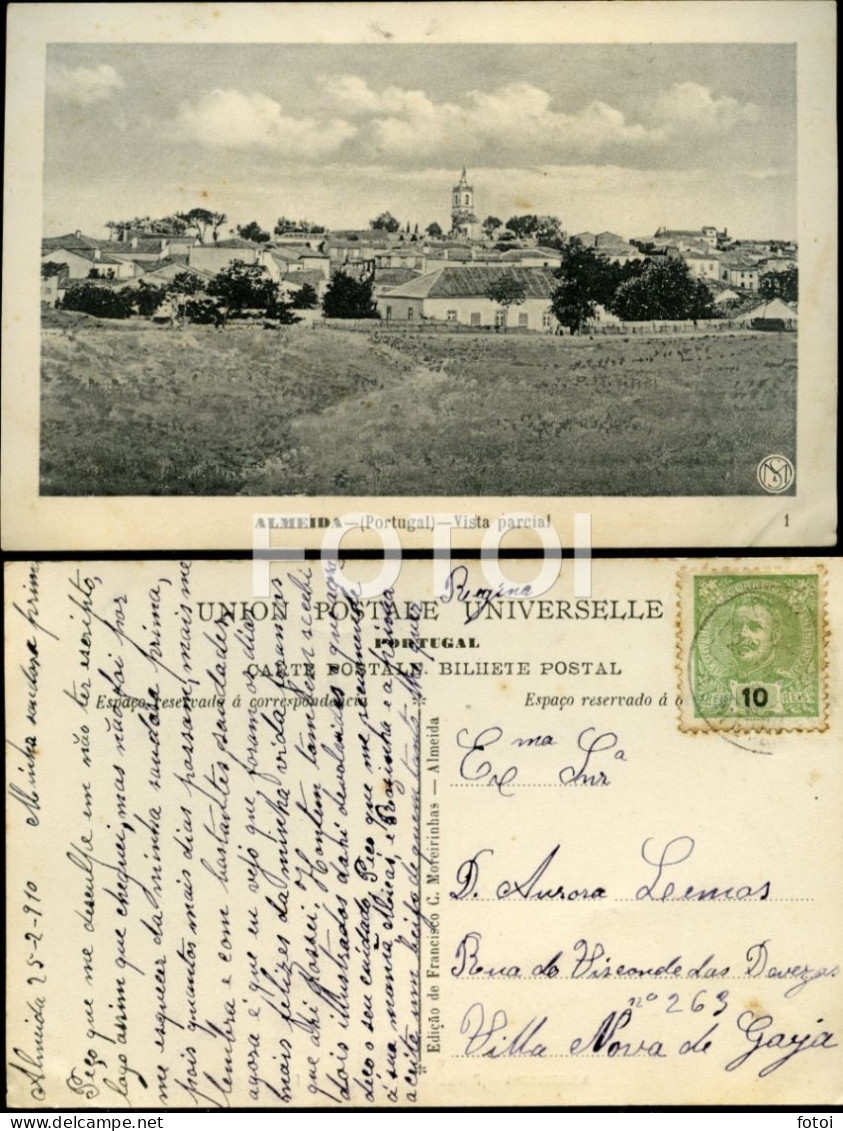 ALMEIDA—(Portugal)—Vista parcial
1
FOTOI
Regina
UNION POSTALE UNIVERSELLE
PORTUGAL
CARTE POSTALE. BILHETE POSTAL
Espaço reservado á correspondencia
Espaço reservado á
CORREIOS
10
Edição de Francisco C. Moreirinhas — Almeida
Exma Snra
D. Aurora Lemos
Rua do Visconde das Devezas
nº 263
Villa Nova de Gaya
Almeida 25-2-910 Minha saudosa prima
Peço que me desculpe em não ter escripto,
logo assim que cheguei, mas não foi por
me esquecer da minha saudosa prima,
pois quantos mais dias passam, mais me
lembra e com bastantes saudades,
agora é que eu vejo que foram os dias
mais felizes da minha vida
que ahi passei. Hontem tambem recebi
dois illustrados dahi devolvidos que agra-
deço o seu cuidado. Peço que me
á sua mamã, e Rozinha e a prima
aceite um beijo de quem tanto lhe quer
fotoi